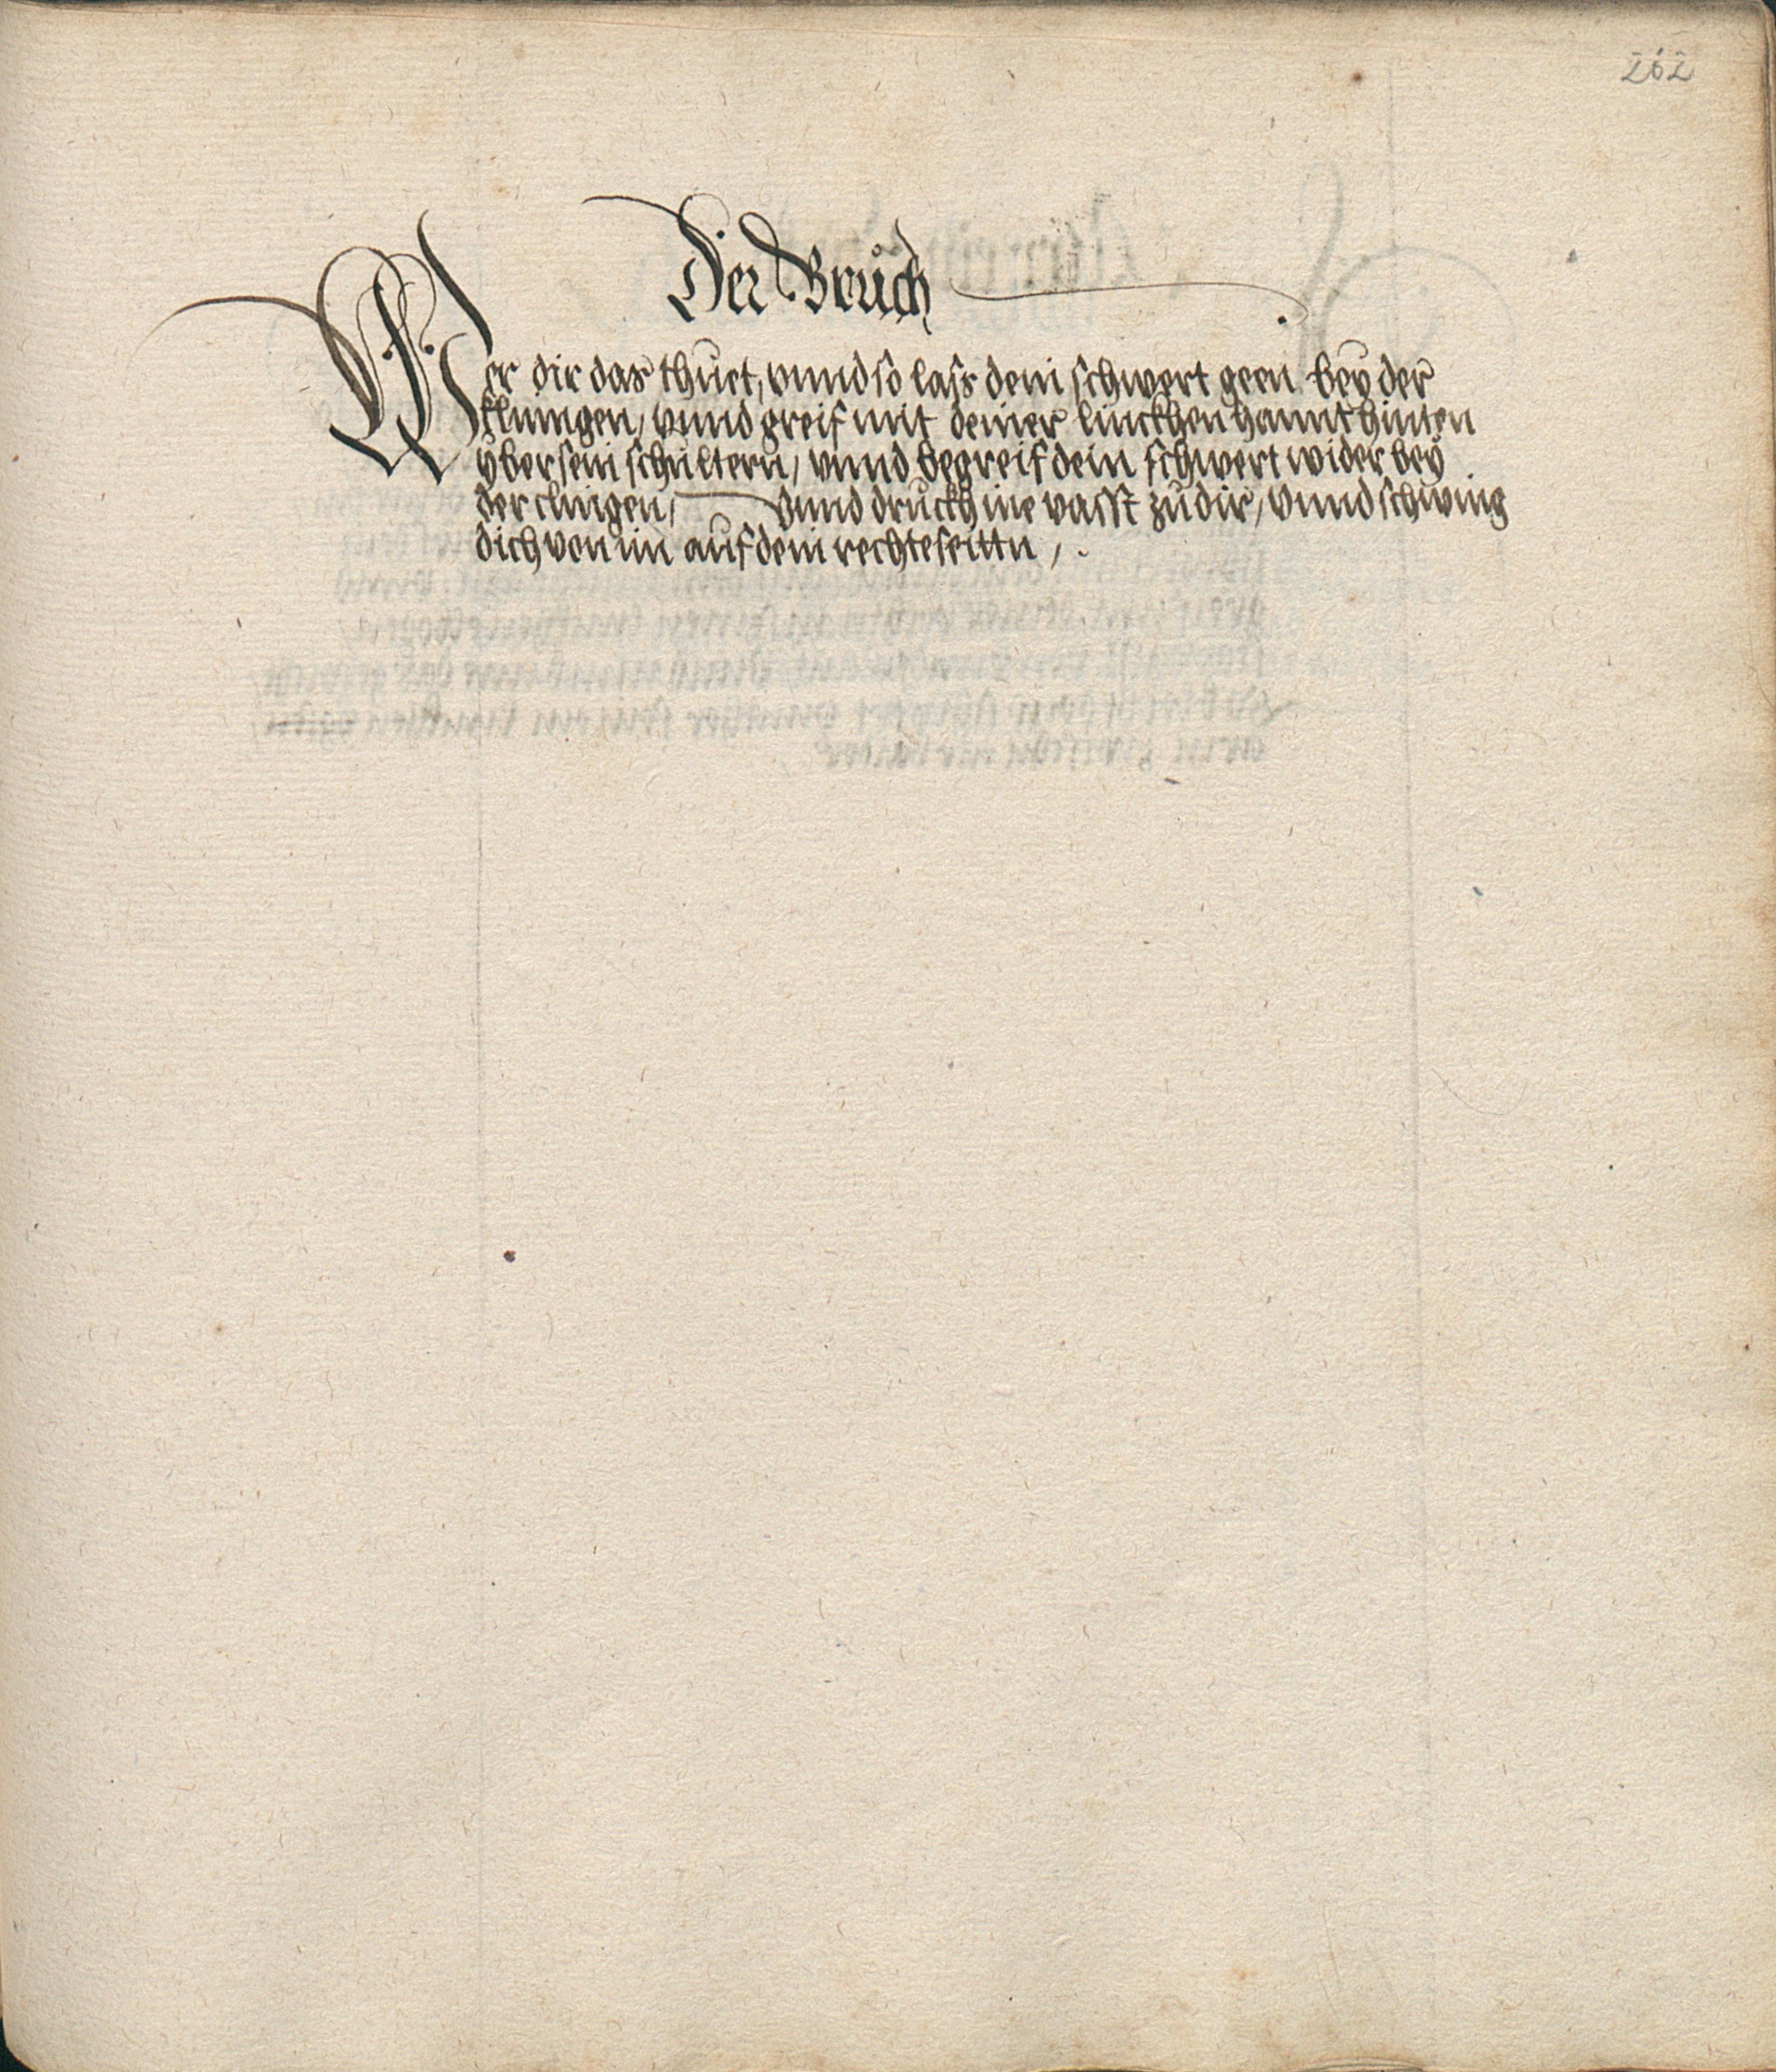 262
Der Bruch
Wer dir das thuet, vnnd so lass dein schwert geen bey der
klinngen, vnnd greif mit deiner linckhen hannt hinten
yber sein schultern, vnnd begreif dein schwert wider bey
der clingen, vnnd druckh ine vasst zu dir, vnnd schwing
dich von im auf dein rechte seittn,